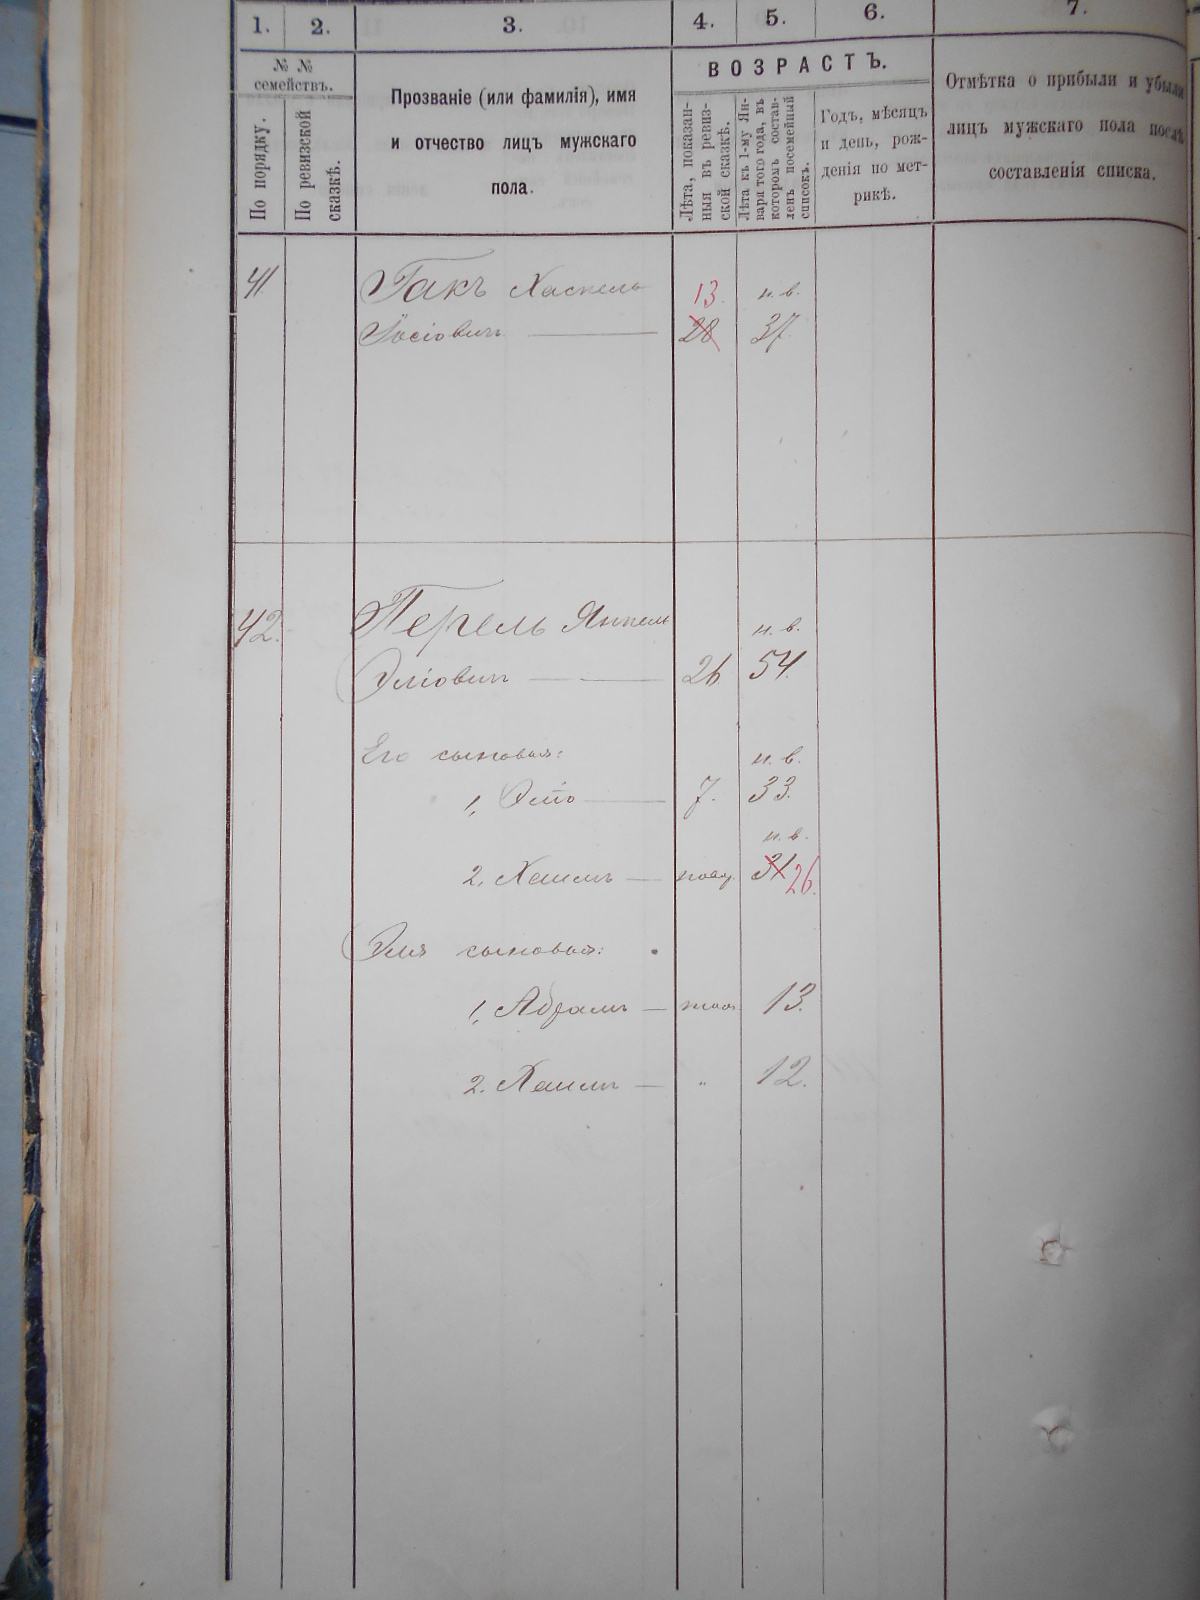 1. 2. 3. 4. 5. 6. 7.
№ №
семействъ.
По порядку.
По ревизской
сказкѣ.
Прозваніе (или фамилія), имя
и отчество лицъ мужскаго
пола.
ВОЗРАСТЪ.
Лѣта, показан-
ныя въ ревиз-
ской сказкѣ.
Лѣта къ 1-му Ян-
варя того года, въ
которомъ состав-
ленъ посемейный
списокъ.
Годъ, мѣсяцъ
и день, рож-
денія по мет-
рикѣ.
Отмѣтка о прибыли и убыли
лицъ мужскаго пола послѣ
составленія списка.
41. Гакъ Хаскель 13 н. в.
Іосіовичъ 28 37
42. Перель Янкель н. в.
Эліовичъ 26 54.
Его сыновья: н. в.
1, Эліо 7. 33.
н. в.
2. Хаимъ 31 26.
Эля сыновья:
1, Абрамъ 13.
2. Хаимъ " 12.